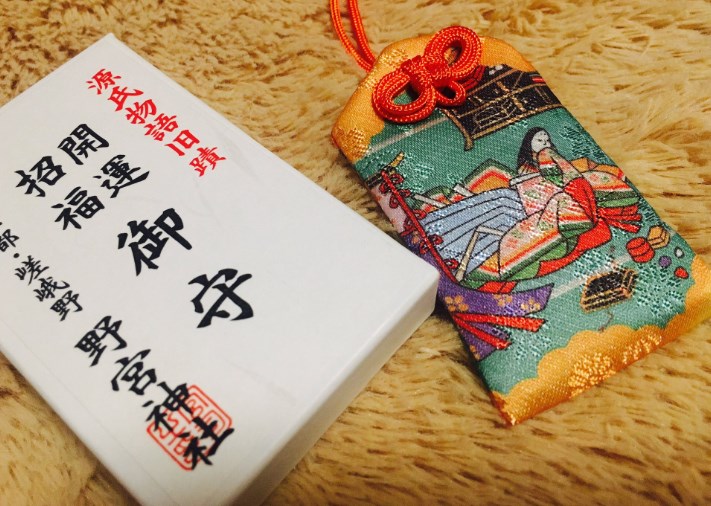 源氏物語旧蹟
開運
招福
御守
都・嵯峨野
野宮神社